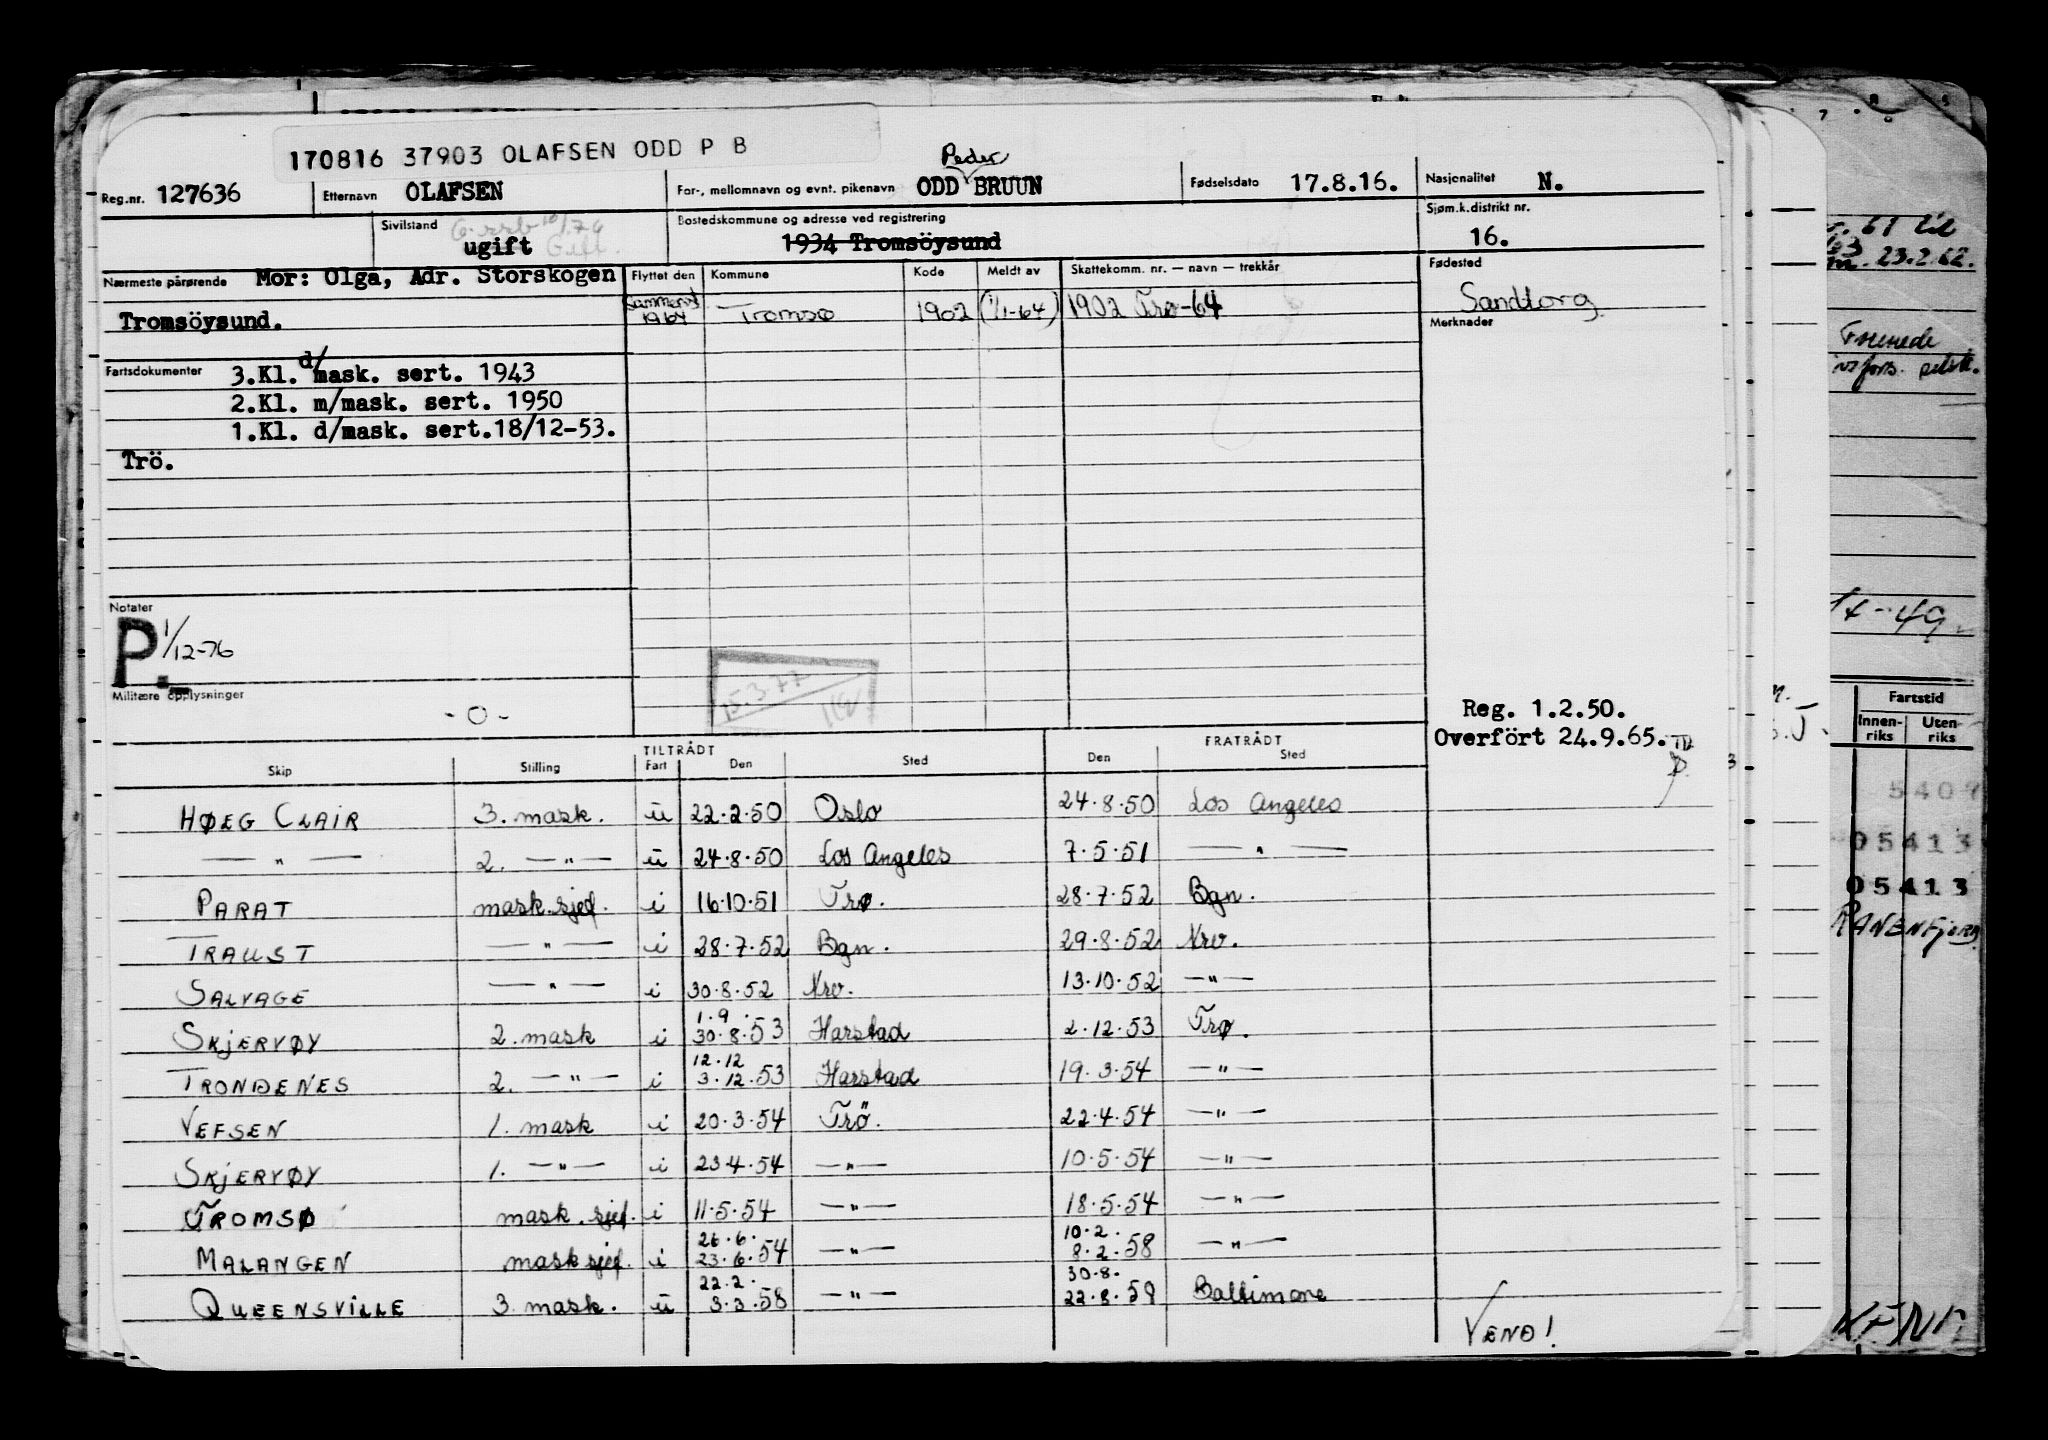 170816 37903 OLAFSEN ODD P B
Reg.nr. 127636 Etternavn OLAFSEN For-, mellomnavn og evnt. pikenavn ODD Peder BRUUN Fødselsdato 17.8.16. Nasjonalitet N.
Sivilstand ugift Gift. Bostedskommune og adresse ved registrering 1934 Tromsöysund Sjøm.k.distrikt nr. 16.
Nærmeste pårørende Mor: Olga, Adr. Storskogen
Tromsöysund.
Flyttet den Kommune Kode Meldt av Skattekomm. nr. — navn — trekkår
Sommeren 1964 Tromsø 1902 (1/1-64) 1902 Trø-64
Fødested Sandtorg
Merknader
Fartsdokumenter 3.Kl. d/mask. sert. 1943
2.Kl. m/mask. sert. 1950
1.Kl. d/mask. sert.18/12-53.
Trö.
Notater
P 1/12-76
15.3.77
Militære opplysninger
- O -
Reg. 1.2.50.
Overfört 24.9.65.
TILTRÅDT FRATRÅDT
Skip Stilling Fart Den Sted Den Sted
HØEG CLAIR 3. mask. u 22.2.50 Oslo 24.8.50 Los Angeles
— " — 2. — " — u 24.8.50 Los Angeles 7.5.51 — " —
PARAT mask.sjef. i 16.10.51 Trø. 28.7.52 Bgn.
TRAUST — " — i 28.7.52 Bgn. 29.8.52 Nrv.
SALVAGE — " — i 30.8.52 Nrv. 13.10.52 — " —
SKJERVØY 2. mask i 1.9. 30.8.53 Harstad 2.12.53 Trø.
TRONDENES 2. — " — i 12.12 3.12.53 Harstad 19.3.54 — " —
VEFSEN 1. mask i 20.3.54 Trö. 22.4.54 — " —
SKJERVØY 1. — " — i 23.4.54 — " — 10.5.54 — " —
TROMSØ mask.sjef. i 11.5.54 — " — 18.5.54 — " —
MALANGEN mask sjef. i 26.6. 23.6.54 — " — 10.2. 8.2.58 — " —
QUEENSVILLE 3. mask. u 22.2. 3.3.58 — " — 30.8. 22.8.59 Baltimore
VEND!
61 til
23.2.62.
49
Fartstid
Innen-riks Uten-riks
5409
05413
05413